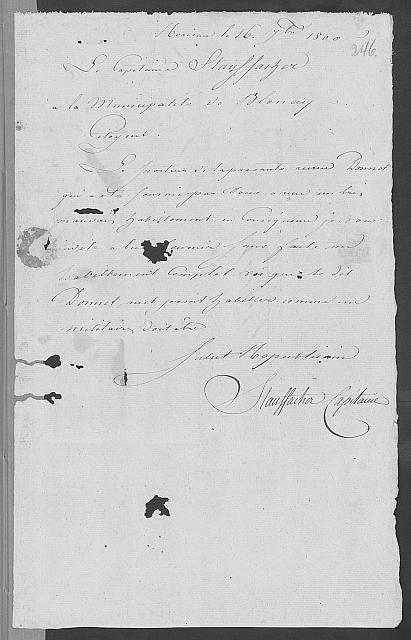 le 16. 7bre 1800
246
Le Capitaine Stauffacher
à la Municipalité de Blonay
Citoyens
porteur de la presente Donnet
qui a été fournis par Vous a un
mauvais habillement en Consequence je vous
invite a lui fournir
habillement Complet le dit
Donnet n'est point habillier comme un
militaire doit être
Salut Republicain
Stauffacher Capitaine